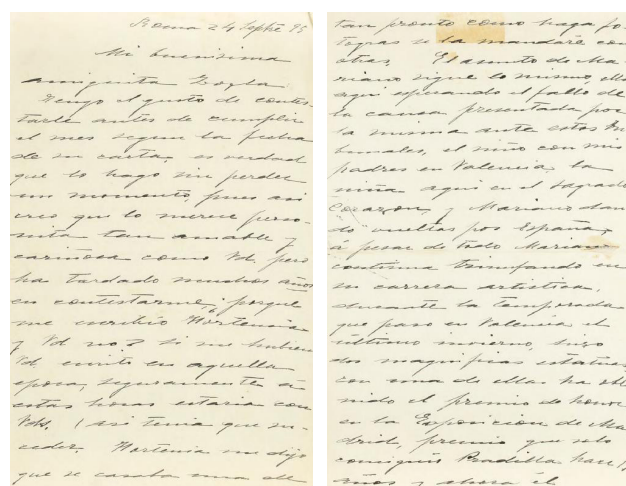 Roma 24 Septbre 95
Mi buenisima
amiguita Zoyla:
Tengo el gusto de contes-
tarle antes de cumplir
el mes segun la fecha
de su carta, es verdad
que lo hago sin perder
un momento, pues asi
creo que lo merece perso-
nita tan amable y
cariñosa como Vd, pero
ha tardado muchos años
en contestarme, ¿porque
me escribió Hortensia
y Vd no? si me hubiera
Vd. escrito en aquella
epoca, seguramente á
estas horas estaria con
Vds. ¡asi tenia que su-
ceder. Hortensia me dijo
que se casaba una de
tan pronto como haga fo-
tografias se la mandaré con
otras. El asunto de Ma-
riano sigue lo mismo,
aqui esperando el fallo de
la causa presentada por
la misma ante estos tri-
bunales, el niño con mis
padres en Valencia, la
niña aqui en el Sagrado
Corazon, y Mariano dan-
do vueltas por España,
á pesar de todo Mariano
continua triunfando en
su carrera artistica,
durante la temporada
que paso en Valencia el
ultimo invierno, hizo
dos magnificas estatuas
con una de ellas ha obte
nido el premio de honor
en la Exposicion de Ma-
drid, premio que solo
consiguió Pradilla hace
años y ahora él